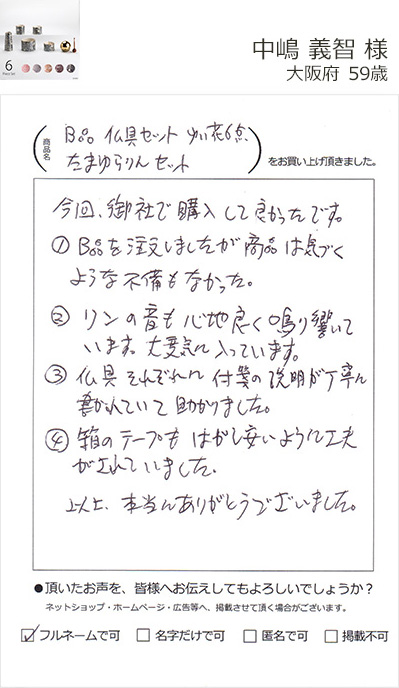 6
中嶋 義智 様
大阪府 59歳
商品名
B品 仏具セット ゆい花6点
たまゆらりん セット
をお買い上げ頂きました。
今回、御社で購入して良かったです。
① B品を注文しましたが商品は気づく
ような不備もなかった。
② リンの音も心地良く鳴り響いて
います。大変気に入っています。
③ 仏具それぞれに付箋の説明が丁寧に
書かれていて助かりました。
④ 箱のテープもはがし安いように工夫
がされていました。
以上、本当にありがとうございました。
●頂いたお声を、皆様へお伝えしてもよろしいでしょうか？
ネットショップ・ホームページ・広告等へ、掲載させて頂く場合がございます。
フルネームで可 名字だけで可 匿名で可 掲載不可